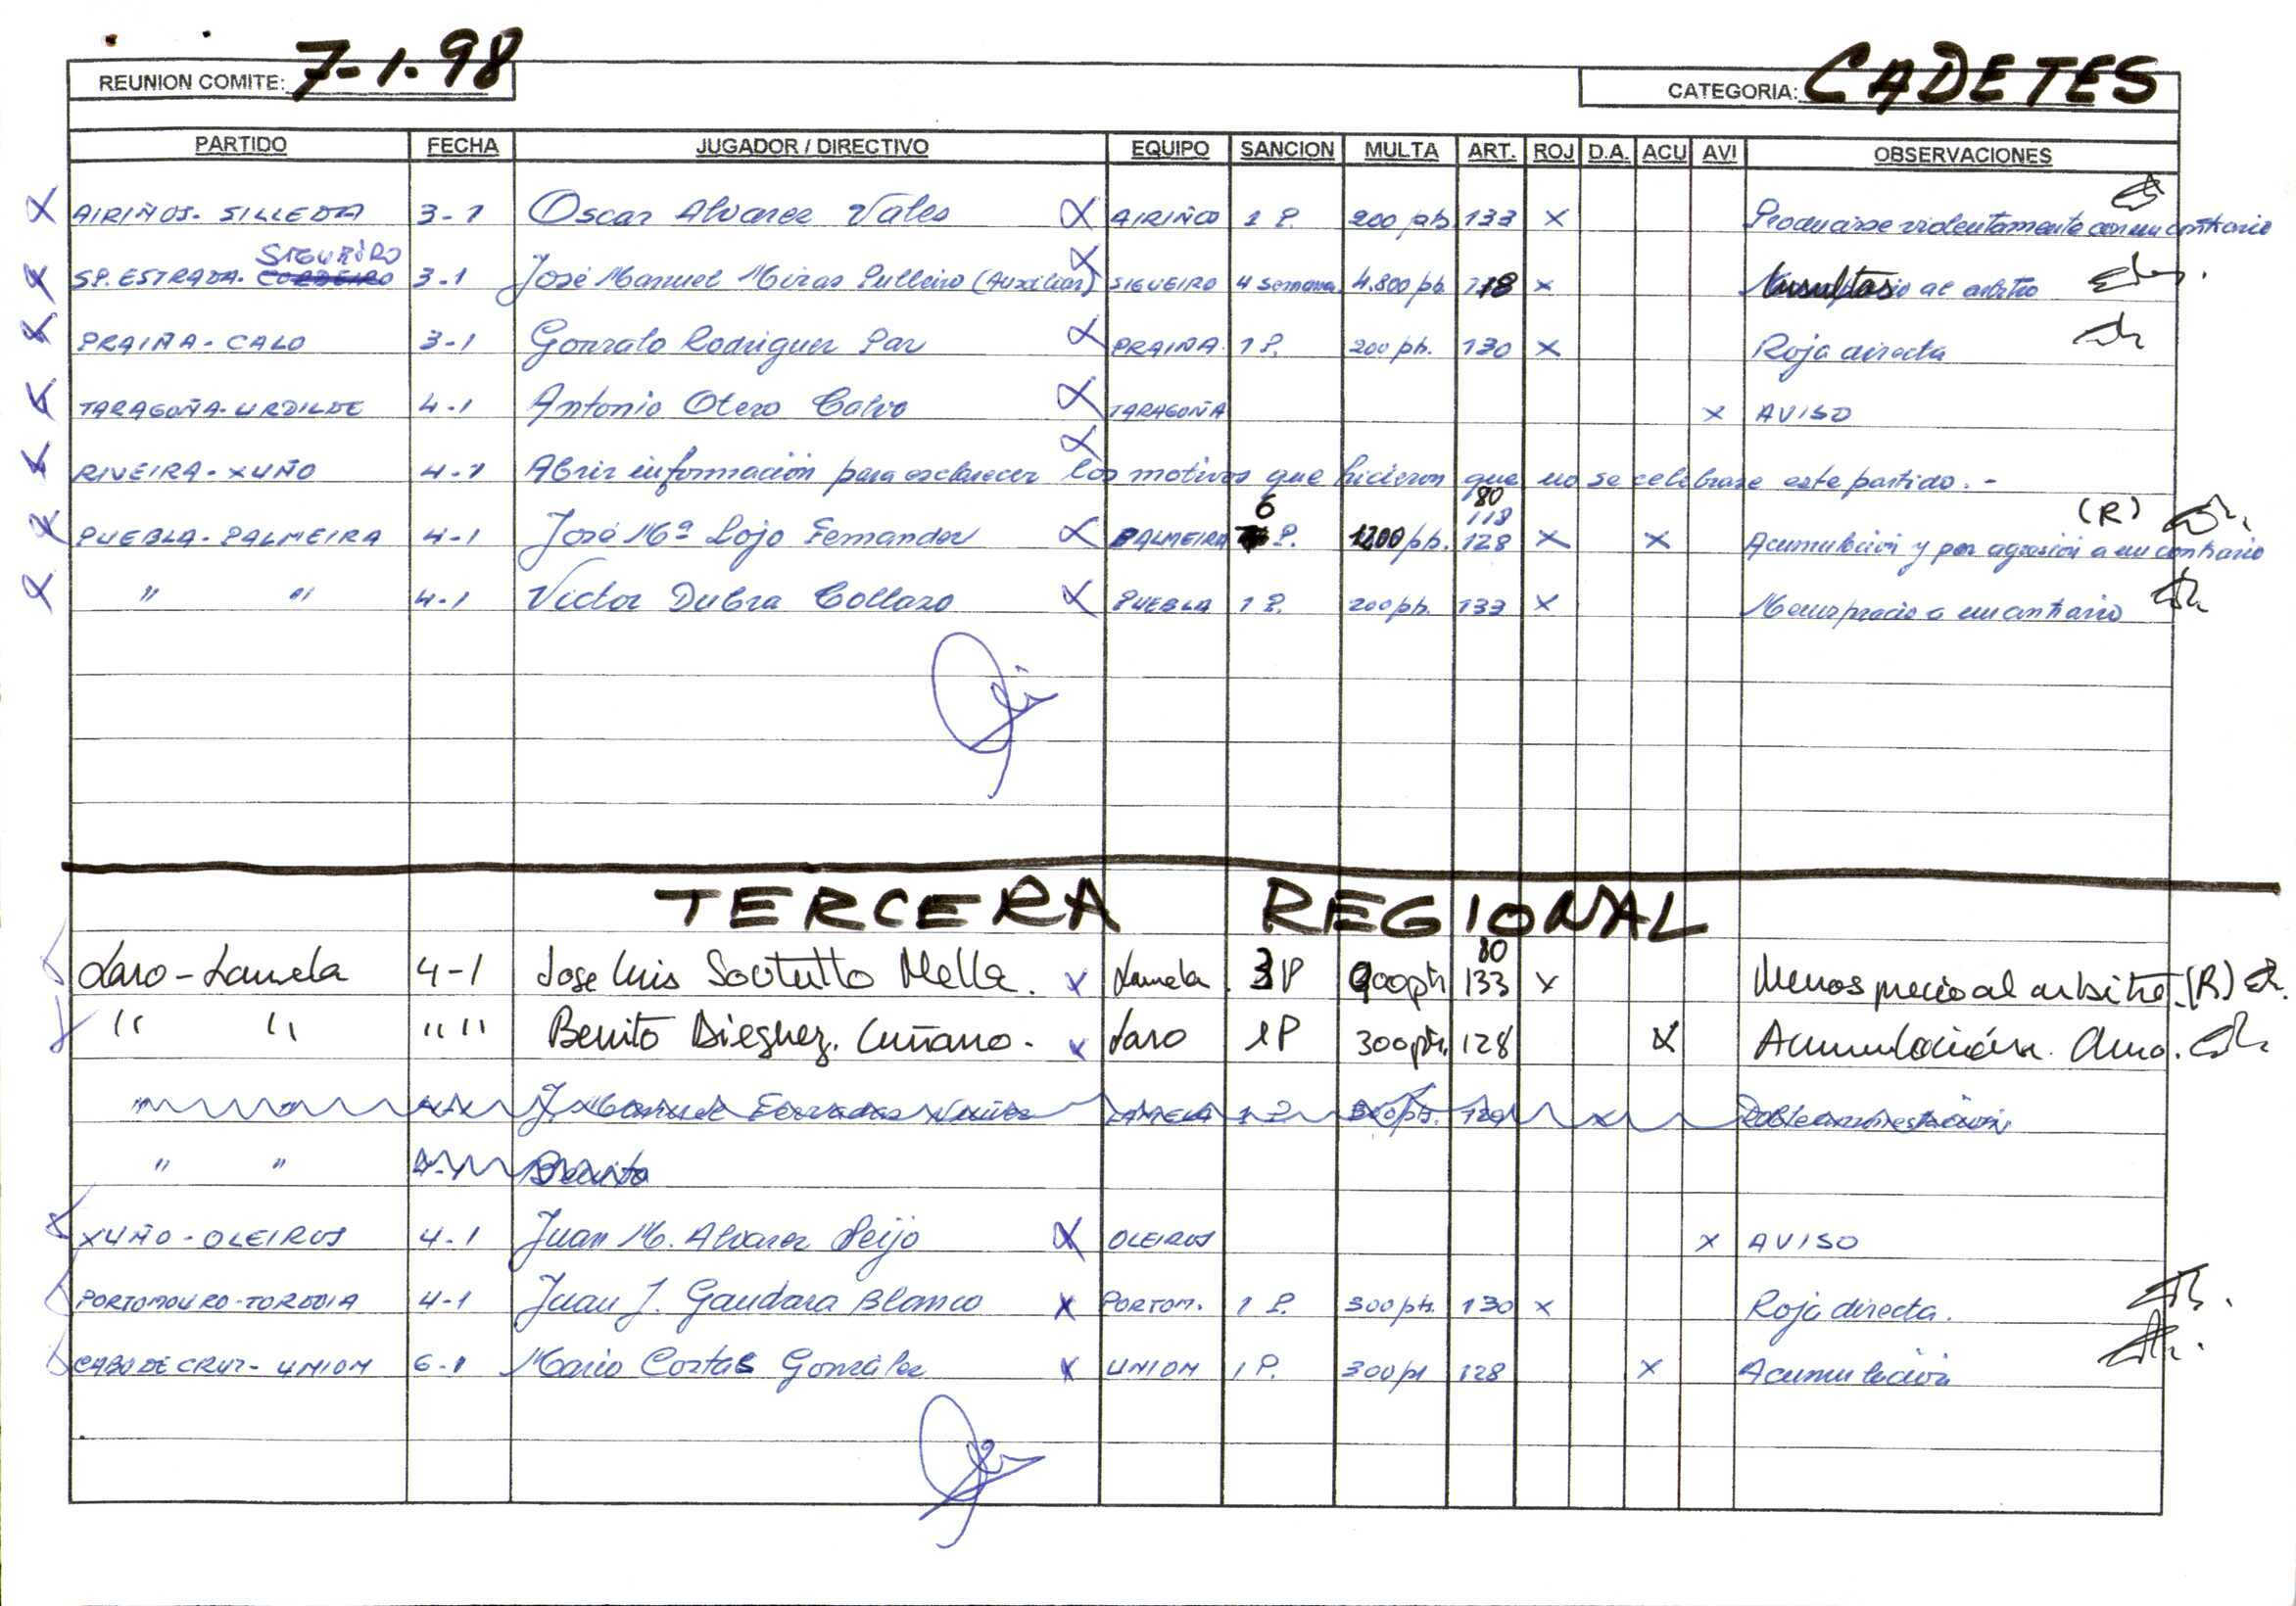 REUNION COMITE: 7-1-98 CATEGORIA: CADETES
PARTIDO FECHA JUGADOR / DIRECTIVO EQUIPO SANCION MULTA ART. ROJ D.A. ACU AVI OBSERVACIONES
AIRIÑOS - SILLEDA 3-1 Oscar Alvarez Vales AIRIÑOS 1 P. 200 pts. 133 x Producirse violentamente con un contrario
SIGUEIRO
SP. ESTRADA - CORDEIRO 3-1 José Manuel Miras Pulleiro (Auxiliar) SIGUEIRO 4 semana 4.800 pts. 118 x Insultos al arbitro
PRAIÑA - CALO 3-1 Gonzalo Rodriguez Paz PRAIÑA 1 P. 200 pts. 130 x Roja directa
TARAGOÑA - URDILDE 4-1 Antonio Otero Calvo TARAGOÑA x AVISO
RIVEIRA - XUÑO 4-1 Abrir información para esclarecer los motivos que hicieron que no se celebrase este partido. -
6 80 118 (R)
PUEBLA - PALMEIRA 4-1 José Mª Lojo Fernandez PALMEIRA P. 1200 pts. 128 x x Acumulación y por agresión a un contrario
" " 4-1 Victor Dubra Collazo PUEBLA 1 P. 200 pts. 133 x Menosprecio a un contrario
TERCERA REGIONAL
80
Laro - Lamela 4-1 Jose Luis Soutullo Mella. x Lamela. 3P 900 pts 133 x Menosprecio al arbitro. (R)
" " " " Benito Dieguez. Cuñano. x Laro 1P 300 pts. 128 x Acumulación. Amo.
" " J. Manuel Ferradas Nuñez LAMELA 1 P. 300 pts. 129 x Doble amonestación
" " 4-1 Benito
XUÑO - OLEIROS 4-1 Juan M. Alvarez Peijo OLEIROS x AVISO
PORTOMOURO - TORDOIA 4-1 Juan J. Gandara Blanco x PORTOM. 1 P. 300 pts. 130 x Roja directa.
CABO DE CRUZ - UNION 6-1 Mario Costas González x UNION 1 P. 300 pt 128 x Acumulación